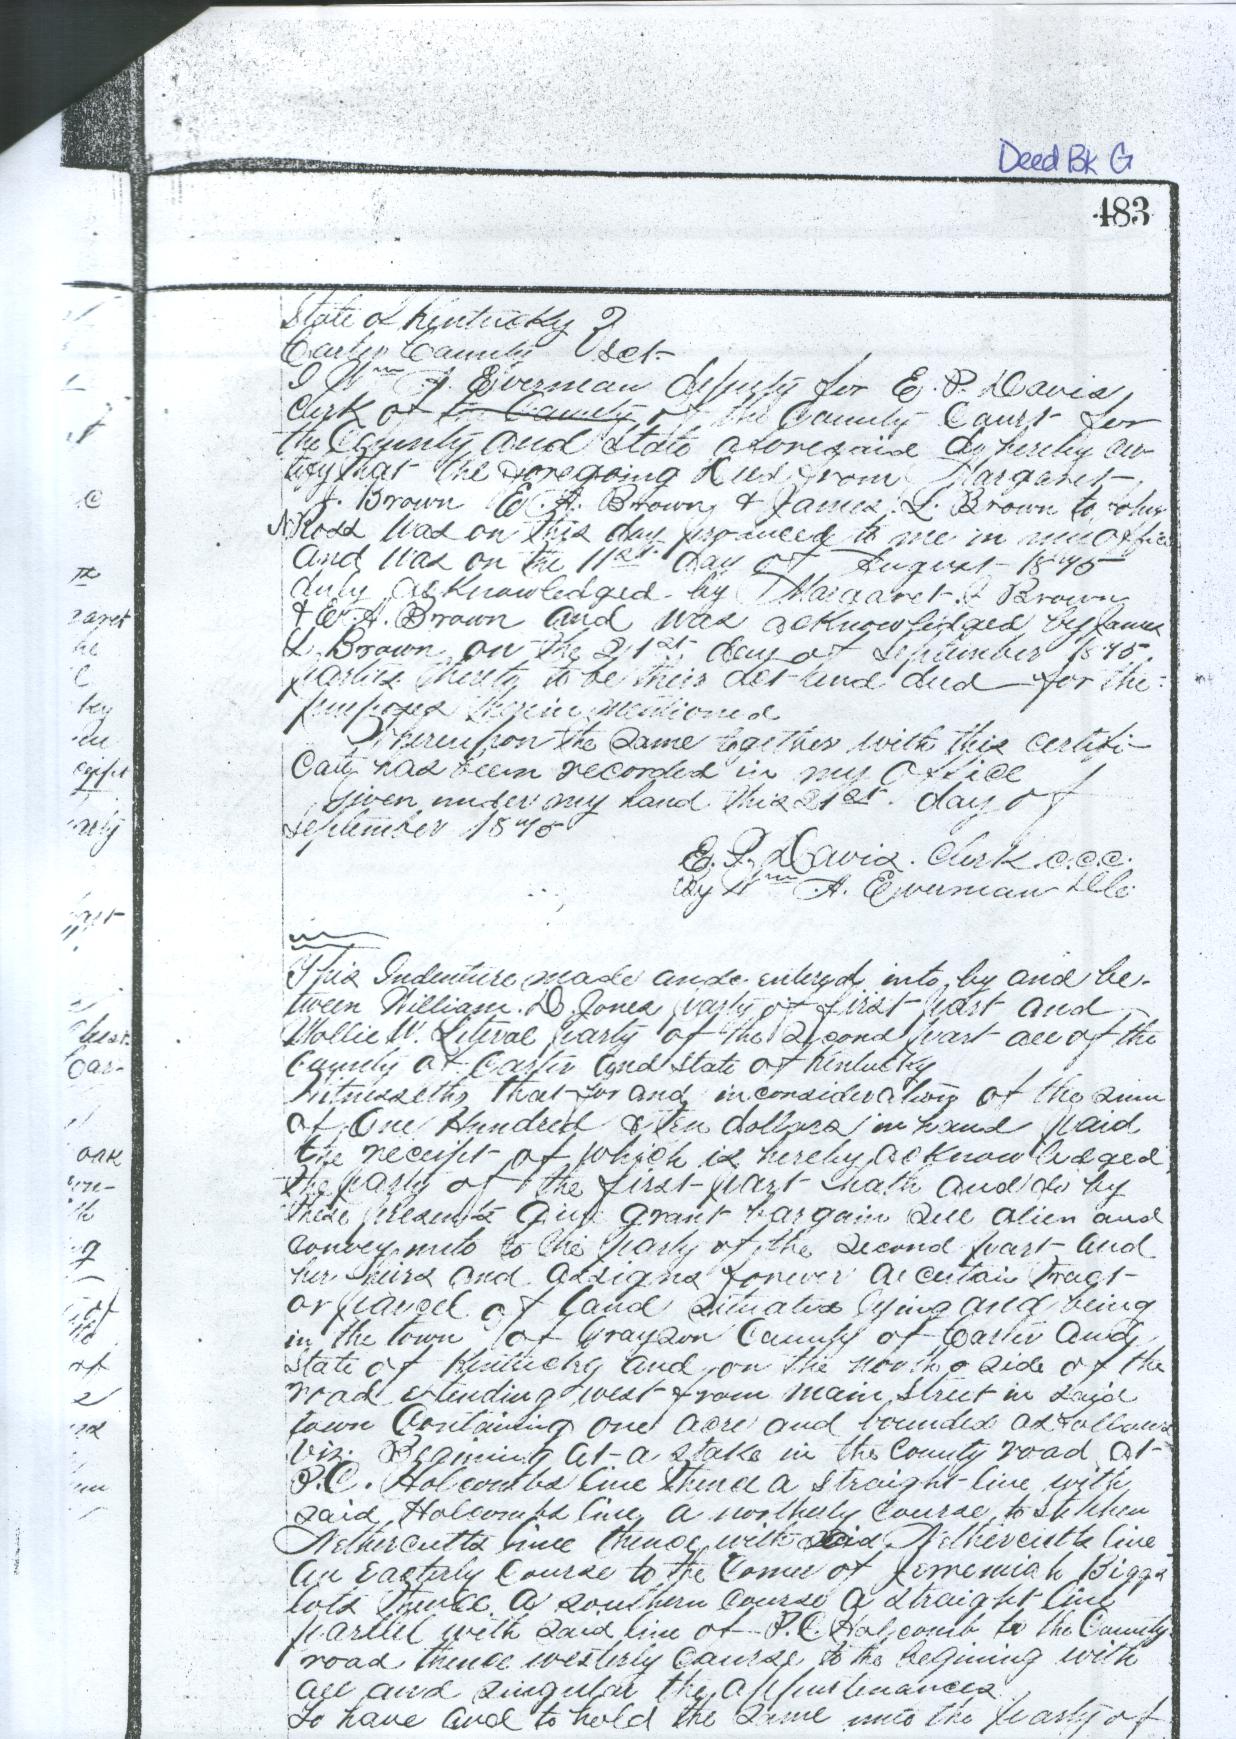 Deed Bk G
483
State of Kentucky }
Carter County } Sct
I Wm A. Everman deputy for E. P. Davis
Clerk of the County of the County Court for
the County and State aforesaid do hereby cer
tify that the foregoing deed from Margaret
J. Brown E. A. Brown & James L. Brown to John
N Ross was on this day produced to me in my office
and was on the 11st day of August 1875
duly acknowledged by Margaret J Brown
& E. A. Brown and was acknowledged by James
L Brown on the 21st day of September 1875
parties thereto to be their act and deed for the
purposes therein mentioned
Whereupon the same together with this certifi-
cate has been recorded in my office
Given under my hand this 21st day of
September 1875
E. P. Davis. Clerk C.C.C.
By Wm A. Everman DC
This Indenture made and entered into by and be-
tween William D. Jones party of first part and
Mollie W. Literal party of the second part all of the
County of Carter and State of Kentucky
Witnesseth that for and in consideration of the sum
of One Hundred & Ten dollars in hand paid
the receipt of which is hereby acknowledged
the party of the first part hath and do by
these presents give grant bargain sell alien and
convey unto to the party of the second part and
her heirs and assigns forever a certain tract
or parcel of land situated lying and being
in the town of Grayson County of Carter and
State of Kentucky and on the north side of the
road extending west from main Street in said
town Containing one acre and bounded as follows
Viz. Begining at a stake in the County road at
P. C. Holcombs line thence a straight line with
said Holcombs line a northerly course to Stephen
Nethercutts line thence with said Nethercutts line
an Easterly course to the corner of Jeremiah Biggs
lots thence a southern course a straight line
parllel with said line of P. C. Holcomb to the County
road thence westerly course to the begining with
all and singular the appurtenances
To have and to hold the same unto the party of